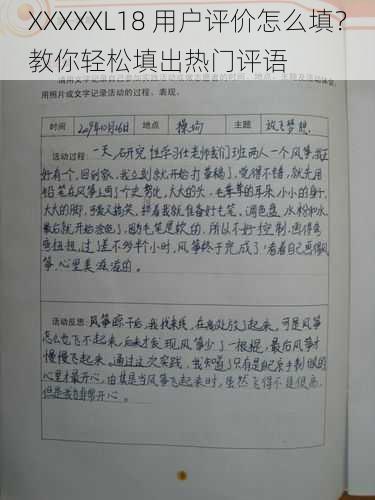 XXXXXL18 用户评价怎么填？
教你轻松填出热门评语
用照片或文字记录活动的过程、表现。
时间 2019年10月16日 地点 操场 主题 放飞梦想
活动过程：一天，研究性学习任老师我们班两人一个风筝，我正
好有个，回到家，我立刻就开始打草稿了，觉得不错，就先用
铅笔在风筝上画了个史努比，大大的头，毛茸茸的耳朵，小小的身子，
大大的脚，可爱又搞笑，接着我就准备好毛笔，调色盘，水粉和水，
最后就开始涂色了，因为毛笔是软的，所以不好控制，画得弯
弯扭扭，过了差不多半个小时，风筝终于完成了，看着自己画得风
筝，心里美滋滋的。
活动反思：风筝晾干后，我找来线，在高处放了起来，可是风筝
怎么也飞不起来，后来才发现，风筝少了一根棍，最后风筝才
慢慢飞起来。通过这次实践，我知道了只有是自己亲手制做的
心里才最开心，尤其是当风筝飞起来时，虽然飞得不是很高，
但是我也非常开心。